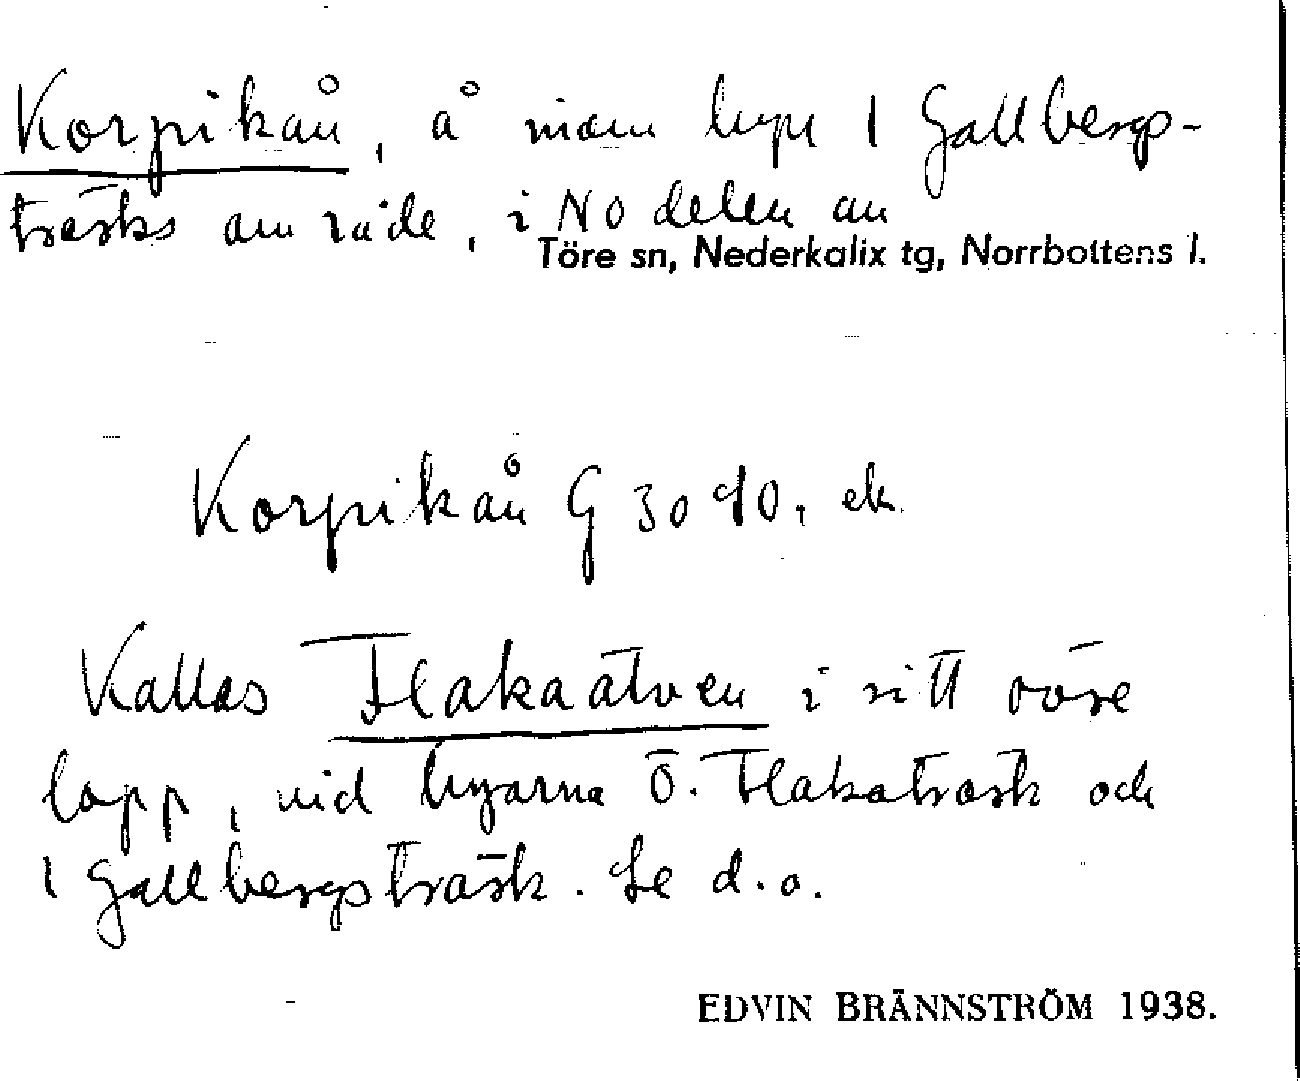 Korpikån, å inom byn L Gällbergs-
träsks område, i NO delen av
Töre sn, Nederkalix tg, Norrbottens l.
Korpikån G 3040, ek.
Kallas Flakaälven i sitt övre
lopp, vid byarna Ö. Flakaträsk och
L Gällbergsträsk. Se d.o.
EDVIN BRÄNNSTRÖM 1938.